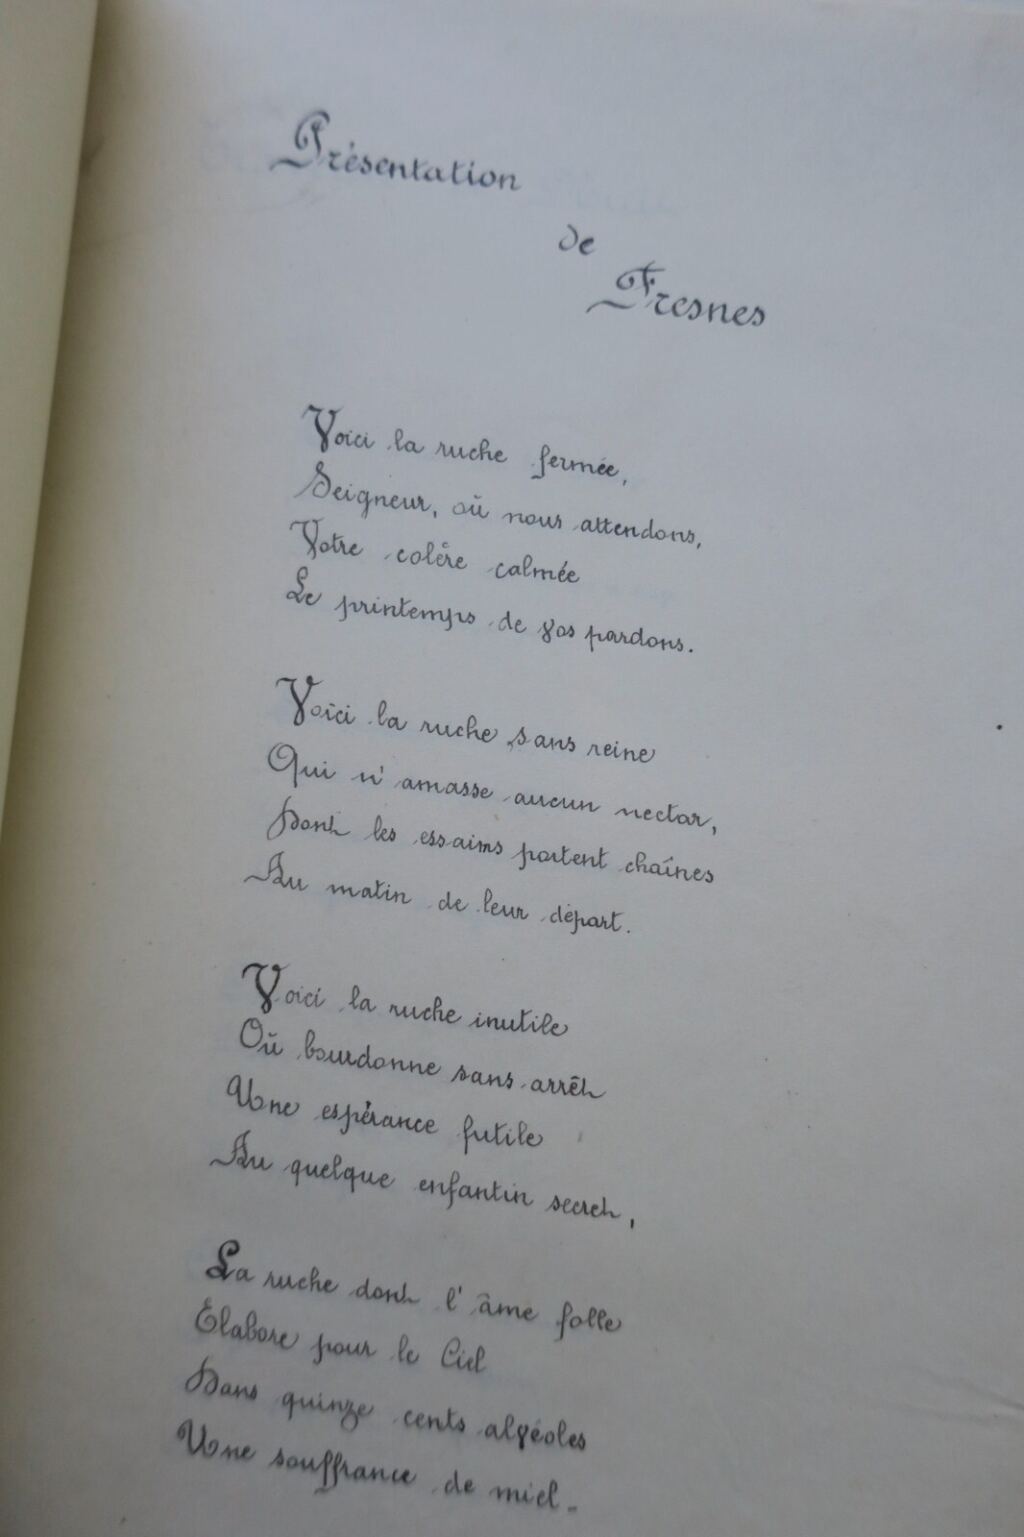 Présentation
de
Fresnes
Voici la ruche fermée,
Seigneur, où nous attendons,
Votre colère calmée
Le printemps de vos pardons.
Voici la ruche sans reine
Qui n'amasse aucun nectar,
Dont les essaims portent chaînes
Au matin de leur départ.
Voici la ruche inutile
Où bourdonne sans arrêt
Une espérance futile
Au quelque enfantin secret,
La ruche dont l'âme folle
Elabore pour le Ciel
Dans quinze cents alvéoles
Une souffrance de miel.